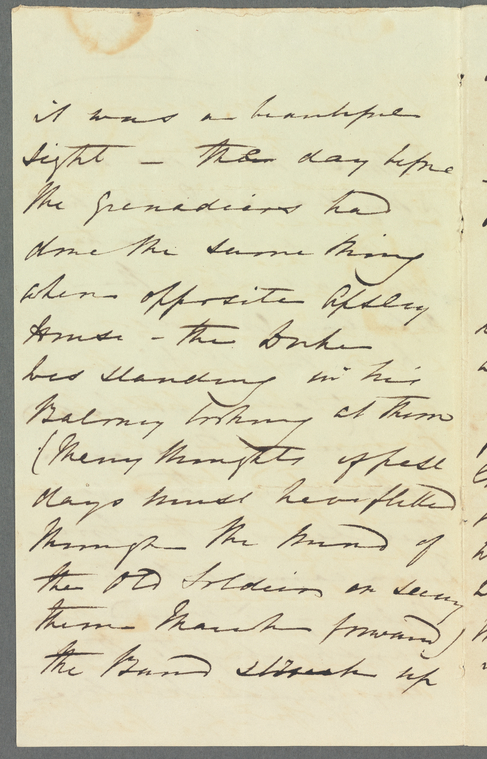 it was a beautiful
sight - the day before
the Grenadiers had
done the same thing
when opposite Apsley
House - the Duke
was standing in his
Balcony looking at them
(Many thoughts of past
days must have flitted
through the mind of
the Old Soldier on seeing
them March forward)
the Band struck up